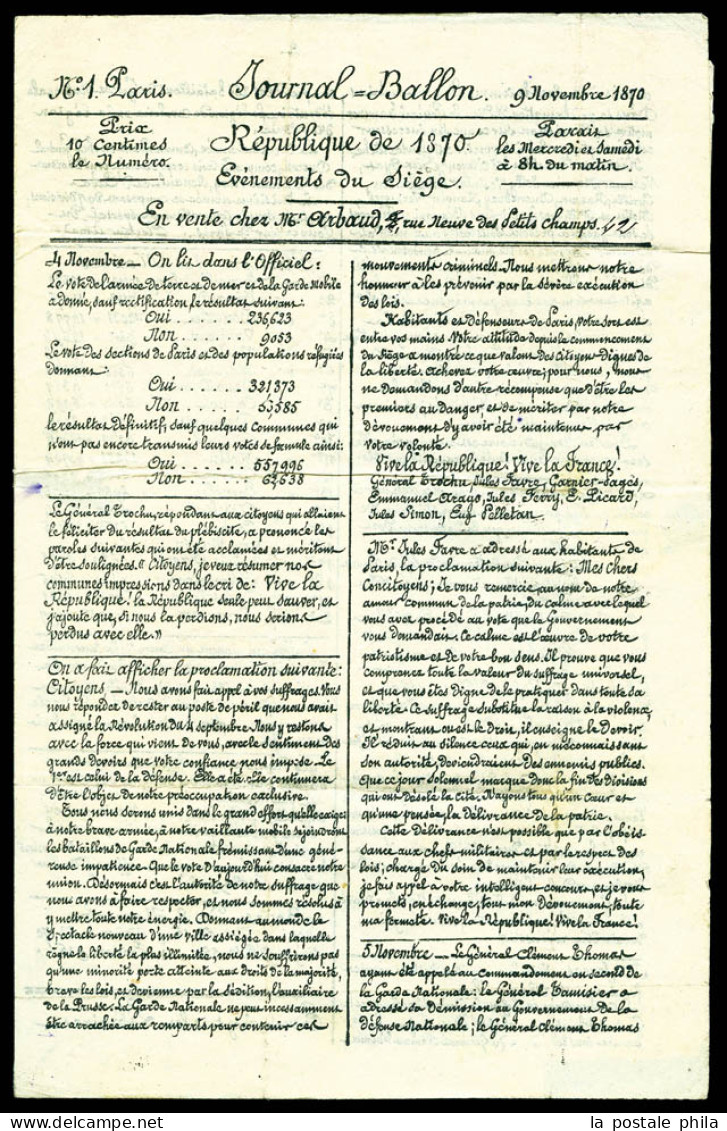 No. 1. Paris. Journal = Ballon. 9 Novembre 1870
Prix
10 centimes
le Numéro.
République de 1870.
Evénements du Siège.
Paraît
les Mercredi et Samedi
à 8h. du matin.
En vente chez Mr. Arbaud, rue Neuve des Petits champs. 42
4 Novembre _ On lit dans l'Officiel:
Le vote de l'armée de terre et de mer et de la Garde Mobile
a donné, sauf rectification le résultat suivant:
Oui . . . . . . 236,623
Non . . . . . . 9053
Le vote des sections de Paris et des populations réfugiées
donnant:
Oui . . . . . . 321,373
Non . . . . . 53,585
le résultat définitif, sauf quelques communes qui
n'ont pas encore transmis leurs votes se formule ainsi:
Oui . . . . . 557,996
Non . . . . . 62,638
Le Général Trochu, répondant aux citoyens qui allaient
le féliciter du résultat du plébiscite, a prononcé les
paroles suivantes qui ont été acclamées et méritent
d'être soulignées. « Citoyens, je veux résumer nos
communes impressions dans le cri de: Vive la
République! la République seule peut sauver, et
j'ajoute que, si nous la perdions, nous serions
perdus avec elle. »
On a fait afficher la proclamation suivante:
Citoyens, _ Nous avons fait appel à vos suffrages. Vous
nous répondez de rester au poste de péril que nous avait
assigné la Révolution du 4 septembre. Nous y restons
avec la force qui vient de vous, avec le sentiment des
grands devoirs que votre confiance nous impose. Le
1er est celui de la défense. Elle a été. elle continuera
d'être l'objet de notre préoccupation exclusive.
Tous nous serons unis dans le grand effort qu'elle exige:
à notre brave armée, à notre vaillante mobile se joindront
les bataillons de Garde Nationale frémissant d'une géné-
reuse impatience. Que le vote d'aujourd'hui consacre notre
union. Désormais c'est l'autorité de notre suffrage que
nous avons à faire respecter, et nous sommes résolus à
y mettre toute notre énergie. Donnant au monde le
spectacle nouveau d'une ville assiégée dans laquelle
règne la liberté la plus illimitée, nous ne souffrirons pas
qu'une minorité porte atteinte aux droits de la majorité,
brave les lois, et devienne par la sédition, l'auxiliaire
de la Prusse. La Garde Nationale ne peut incessamment
être arrachée aux remparts pour contenir ces
mouvements criminels. Nous mettrons notre
honneur à les prévenir par la sévère exécution
des lois.
Habitants et défenseurs de Paris, votre sort est
entre vos mains. Votre attitude depuis le commencement
du Siège a montré ce que valent des Citoyens dignes de
la liberté. Achevez votre œuvre; pour nous, nous
ne demandons d'autre récompense que d'être les
premiers au danger, et de mériter par notre
dévouement d'y avoir été maintenus par
votre volonté.
Vive la République! Vive la France!
Général Trochu, Jules Favre, Garnier-Pagès,
Emmanuel Arago, Jules Ferry, E. Picard,
Jules Simon, Eug Pelletan.
Mr. Jules Favre a adressé aux habitants de
Paris, la proclamation suivante: Mes chers
Concitoyens; Je vous remercie au nom de notre
amour commun de la patrie, du calme avec lequel
vous avez procédé au vote que le Gouvernement
vous demandait. Ce calme est l'œuvre de votre
patriotisme et de votre bon sens. Il prouve que vous
comprenez toute la valeur du suffrage universel,
et que vous êtes digne de le pratiquer dans toute sa
liberté. Ce suffrage substitue la raison à la violence,
et montrant où est le droit, il enseigne le devoir.
Il réduit au silence ceux qui, en méconnaissant
son autorité, deviendraient des ennemis publics.
Que ce jour solennel marque donc la fin des divisions
qui ont désolé la cité. N'ayons tous qu'un cœur et
qu'une pensée, la délivrance de la patrie.
Cette délivrance n'est possible que par l'obéis-
sance aux chefs militaires et par le respect des
lois; chargé du soin de maintenir leur exécution,
je fais appel à votre intelligent concours, et je vous
promets, en échange, tout mon dévouement, toute
ma fermeté. Vive la République! Vive la France!
5 Novembre _ Le Général Clément Thomas
ayant été appelé au commandement en second de
la Garde Nationale: le Général Tamisier a
adressé sa démission au Gouvernement de la
défense Nationale; le Général Clément Thomas
la postale phila